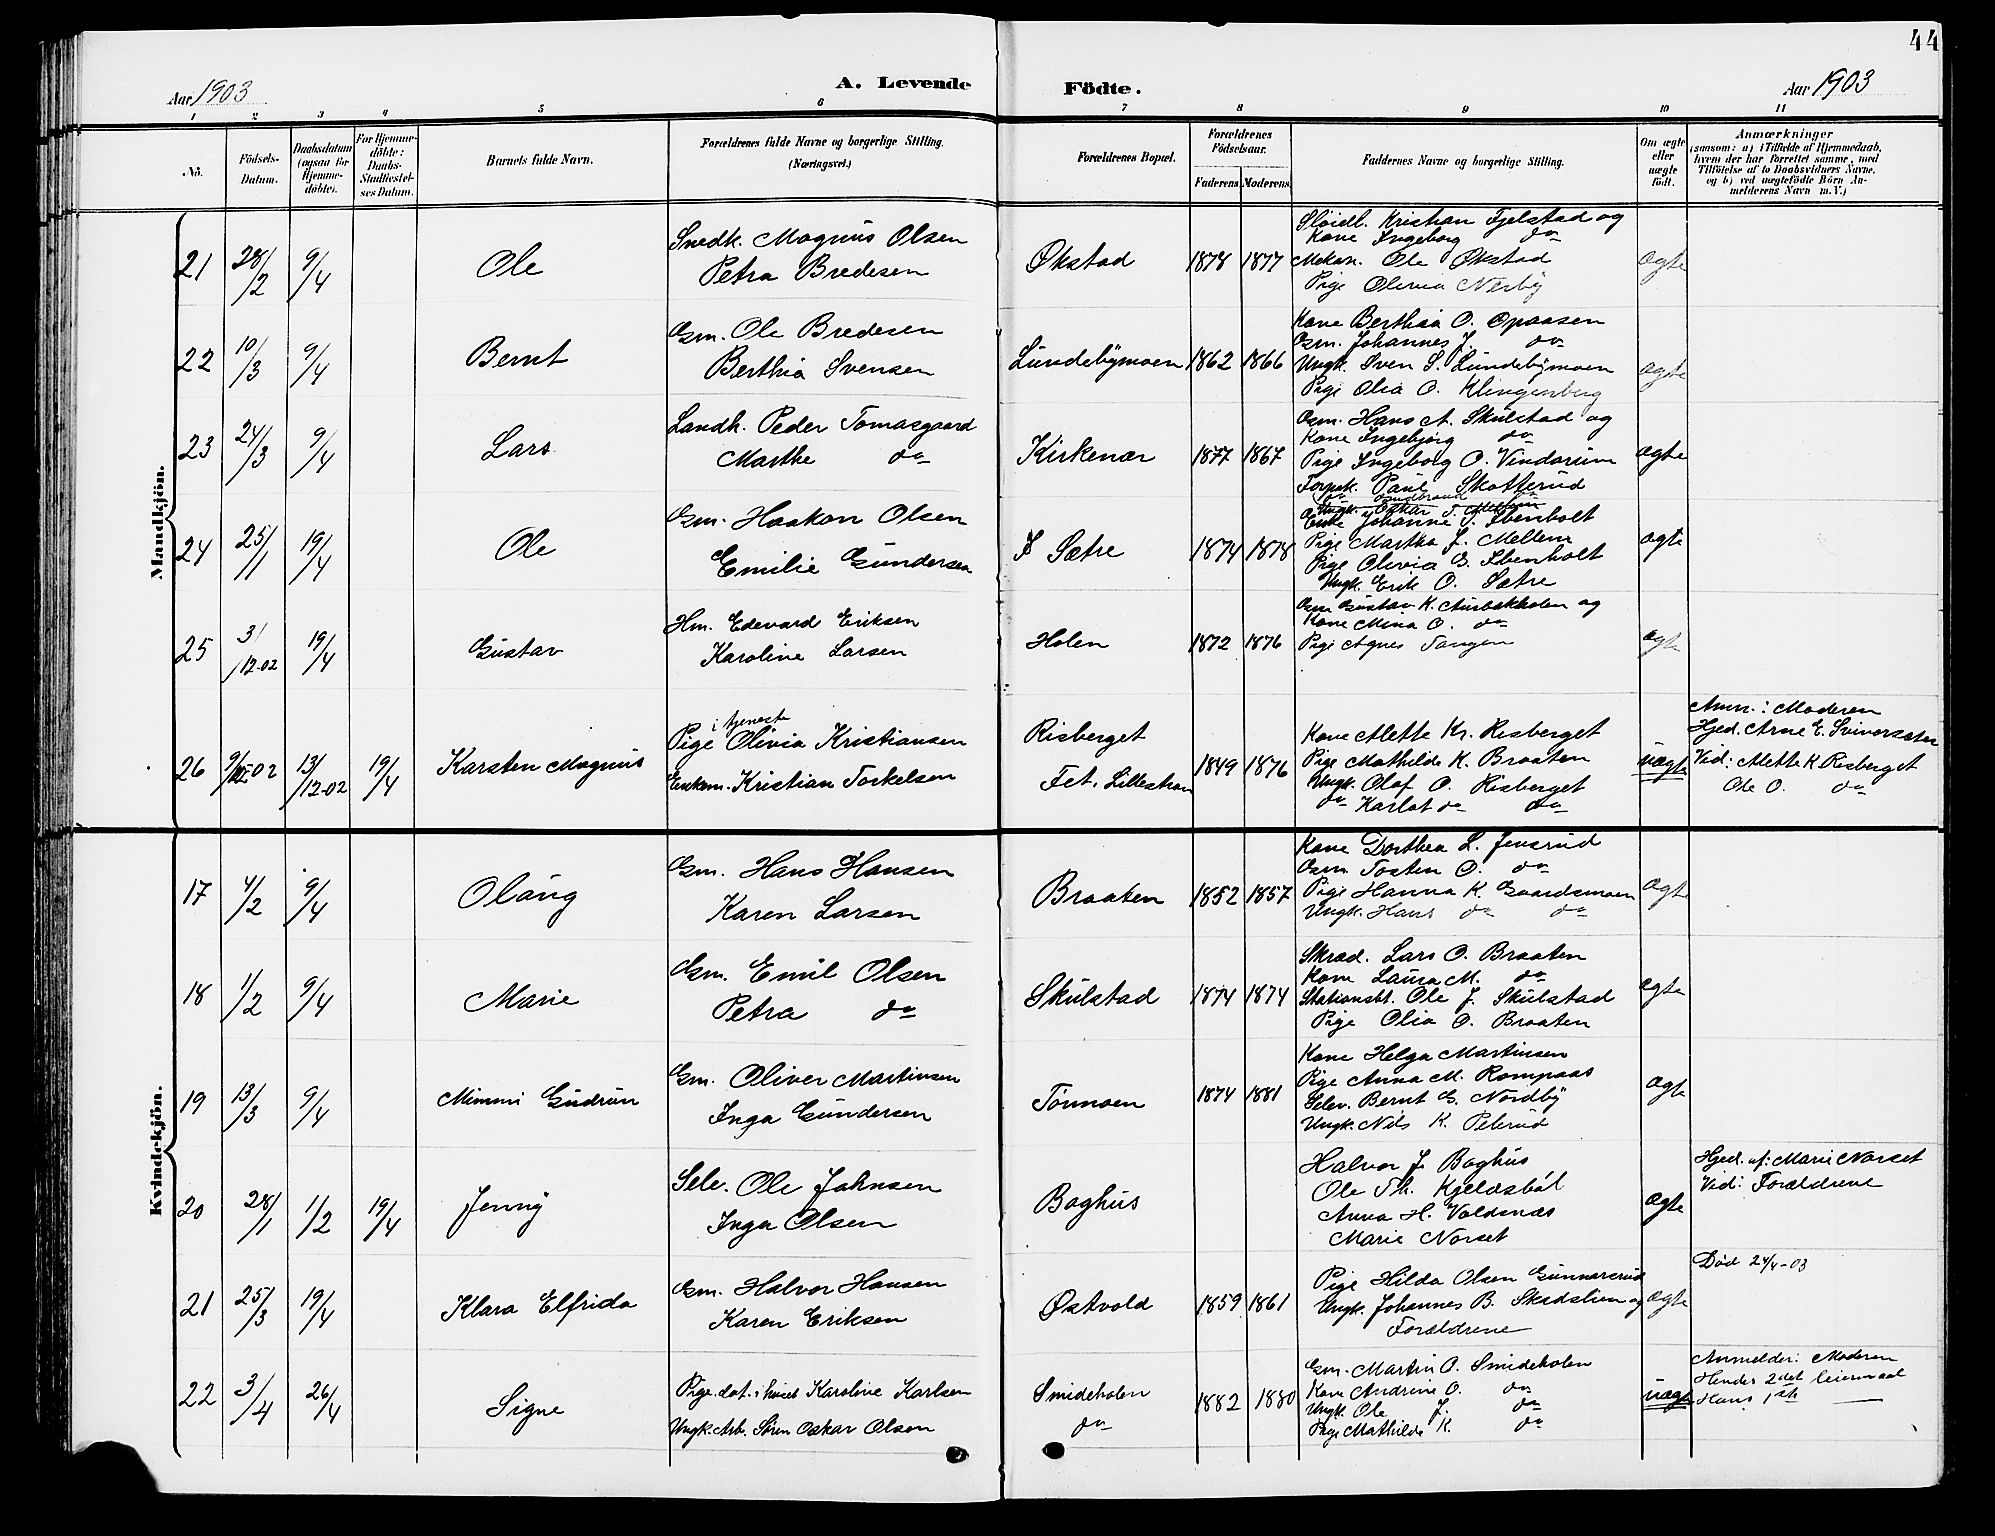 44
Aar 1903
A. Levende Födte.
Aar 1903
1 2 3 4 5 6 7 8 9 10 11
No.
Födsels-Datum.
Daabsdatum (ogsaa for Hjemme-döbte).
For Hjemme-döbte: Daabs-Stadfæstel-ses Datum.
Barnets fulde Navn.
Forældrenes fulde Navne og borgerlige Stilling. (Næringsvei.)
Forældrenes Bopæl.
Forældrenes Födselsaar.
Faderens Moderens
Faddernes Navne og borgerlige Stilling.
Om ægte eller uægte födt.
Anmærkninger
(saasom: a) i Tilfælde af Hjemmedaab, hvem der har forrettet samme, med Tilföielse af to Daabsvidners Navne, og b) ved uægtefödte Börn An-melderens Navn m. V.)
Mandkjön.
21 28/2 9/4 Ole
Snedk. Magnus Olsen
Petra Bredesen
Økstad 1878 1877
Sløidl. Kristian Fjelstad og
Kone Ingeborg do
Mekan. Ole Økstad
Pige Olivia Nerby
ægte
22 10/3 9/4 Bernt
Gm. Ole Bredesen
Berthia Svensen
Lundebymoen 1862 1866
Kone Berthia O. Opaasen
Gm. Johannes J. do
Ungk. Sven S. Lundebymoen
Pige Olia O. Klingenberg
ægte
23 24/3 9/4 Lars
Landh. Peder Tomasgaard
Marthe do
Kirkenær 1877 1867
Gm. Hans A. Skulstad og
Kone Ingebjørg do
Pige Ingeborg O. Vindorum
Forpak. Paul Skotterud
ægte
24 25/1 19/4 Ole
Gm. Haakon Olsen
Emilie Gundersen
Sætre 1874 1878
Enke Johanne T. Ibenholt
Pige Martha J. Mellem
Pige Olivia G. Ibenholt
Ungk. Erik O. Sætre
ægte
25 3/12-02 19/4 Gustav
Hm. Edevard Eriksen
Karoline Larsen
Holen 1872 1876
Gm Gustav K. Aurbakholen og
Kone Mina O. do
Pige Agnes Tangen
ægte
26 13/12-02 19/4 Karsten Magnus
i tjeneste
Pige Olivia Kristiansen
Enkem. Kristian Torkelsen
Risberget
Fet. Lillestrøm
1849 1876
Kone Alette Kr. Risberget
Pige Mathilde K. Braaten
Ungk. Olaf O. Risberget
do Karlot do do
uægte
Anm.: Moderen
Hjed. Arne E. Sviversæter
Vid: Alette K Risberget
Ole O. do
Kvindekjön.
17 4/2 9/4 Olaug
Gm. Hans Hansen
Karen Larsen
Braaten 1852 1857
Kone Dorthea L. Jensrud
Gm. Tosten O. do
Pige Hanna K. Gaardsmoen
Ungk. Hans do do
ægte
18 1/2 9/4 Marie
Gm. Emil Olsen
Petra do
Skulstad 1874 1874
Skræd. Lars O. Braaten
Kone Laura M. do
Stationsbt. Ole J. Skulstad
Pige Olia O. Braaten
ægte
19 13/3 9/4 Mimmi Gudrun
Gm. Oliver Martinsen
Inga Gundersen
Tømmoen 1874 1881
Kone Helga Martinsen
Pige Anna M. Rompaas
Selv. Bernt G. Nordby
Ungk. Nils K. Peterud
ægte
20 28/1 1/2 19/4 Jenny
Selv. Ole Johnsen
Inga Olsen
Baghus
Halvor J. Baghus
Ole Th. Kjeldsbøl
Anna H. Valdenæs
Marie Norset
ægte
Hjed. af: Marie Norset
Vid: Forældrene
21 25/3 19/4 Klara Elfrida
Gm. Halvor Hansen
Karen Eriksen
Østvold 1859 1861
Pige Hilda Olsen Gunnarsrud
Ungk. Johannes B. Skadslien og
Forældrene
ægte
Død 24/4-03
22 3/4 26/4 Signe
Pige. dat. i huset Karoline Karlsen
Ungk. Arb. Søren Oskar Olsen
Smideholen
do
1882 1880
Gm. Martin O. Smideholen
Kone Andrine O. do
Ungk. Ole J. do
Pige Mathilde K. do
uægte
Anmelder: Moderen
Hendes 2det leiermaal
Hans 1ste —